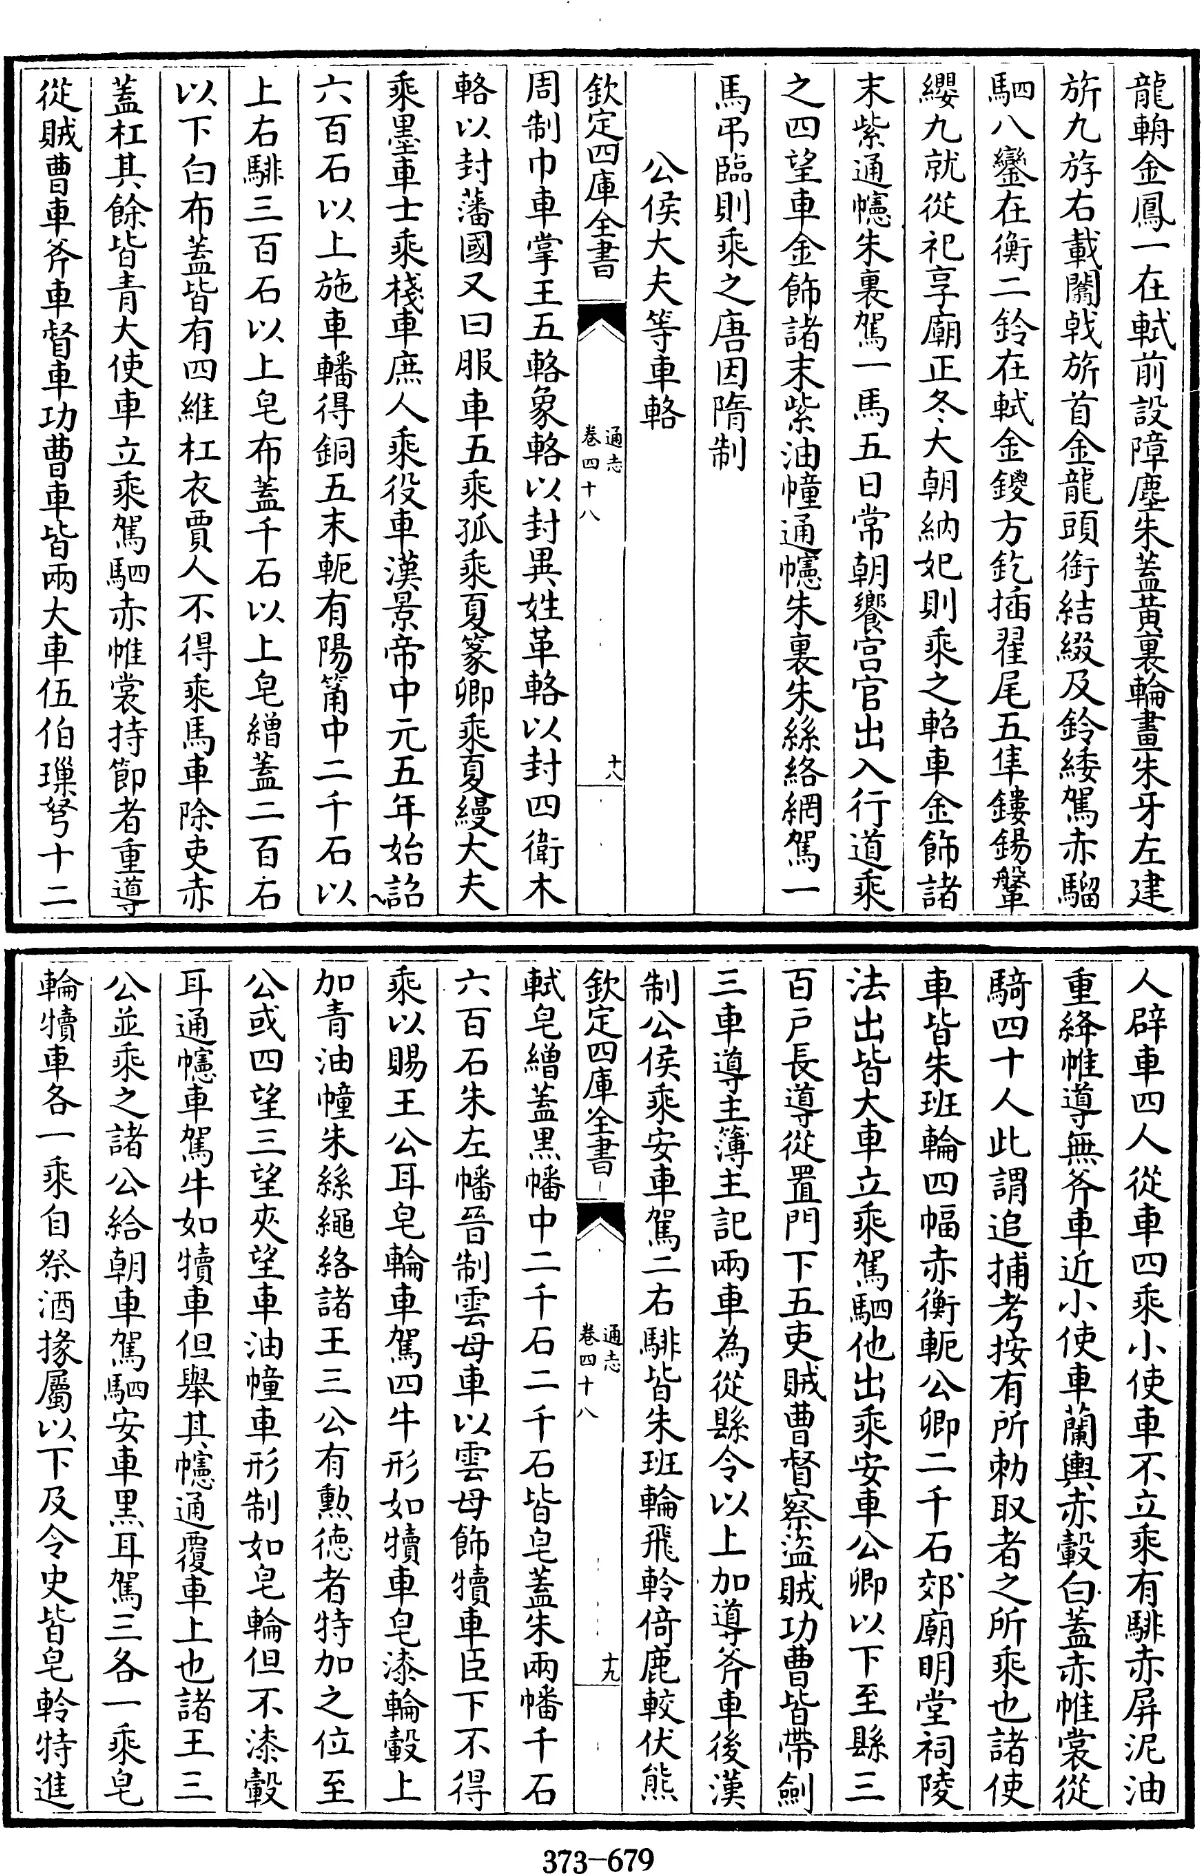 龍輈金鳳一在軾前設障塵朱蓋黃裏輪畫朱牙左建
旂九斿右載闟戟旂首金龍頭銜結綬及鈴緌駕赤騮
駟八鑾在衡二鈴在軾金鍐方釳插翟尾五隼鏤鍚鞶
纓九就從祀享廟正冬大朝納妃則乘之軺車金飾諸
末紫通幰朱裏駕一馬五日常朝饗宮官出入行道乘
之四望車金飾諸末紫油幢通幰朱裏朱絲絡網駕一
馬弔臨則乘之唐因隋制
公侯大夫等車輅
欽定四庫全書
通志
卷四十八
十八
周制巾車掌王五輅象輅以封異姓革輅以封四衛木
輅以封藩國又曰服車五乘孤乘夏篆卿乘夏縵大夫
乘墨車士乘棧車庶人乘役車漢景帝中元五年始詔
六百石以上施車轓得銅五末軛有陽筩中二千石以
上右騑三百石以上皂布蓋千石以上皂繒蓋二百石
以下白布蓋皆有四維杠衣賈人不得乘馬車除吏赤
蓋杠其餘皆青大使車立乘駕駟赤帷裳持節者重導
從賊曹車斧車督車功曹車皆兩大車伍伯璅弩十二
人辟車四人從車四乘小使車不立乘有騑赤屏泥油
重絳帷導無斧車近小使車蘭輿赤轂白蓋赤帷裳從
騎四十人此謂追捕考按有所勅取者之所乘也諸使
車皆朱班輪四幅赤衡軛公卿二千石郊廟明堂祠陵
法出皆大車立乘駕駟他出乘安車公卿以下至縣三
百戶長導從置門下五吏賊曹督察盜賊功曹皆帶劍
三車導主簿主記兩車為從縣令以上加導斧車後漢
制公侯乘安車駕二右騑皆朱班輪飛軨倚鹿較伏熊
欽定四庫全書
通志
卷四十八
十九
軾皂繒蓋黑幡中二千石二千石皆皂蓋朱兩幡千石
六百石朱左幡晉制雲母車以雲母飾犢車臣下不得
乘以賜王公耳皂輪車駕四牛形如犢車皂漆輪轂上
加青油幢朱絲繩絡諸王三公有勳德者特加之位至
公或四望三望夾望車油幢車形制如皂輪但不漆轂
耳通幰車駕牛如犢車但舉其幰通覆車上也諸王三
公並乘之諸公給朝車駕駟安車黑耳駕三各一乘皂
輪犢車各一乘自祭酒掾屬以下及令史皆皂軨特進
373-679